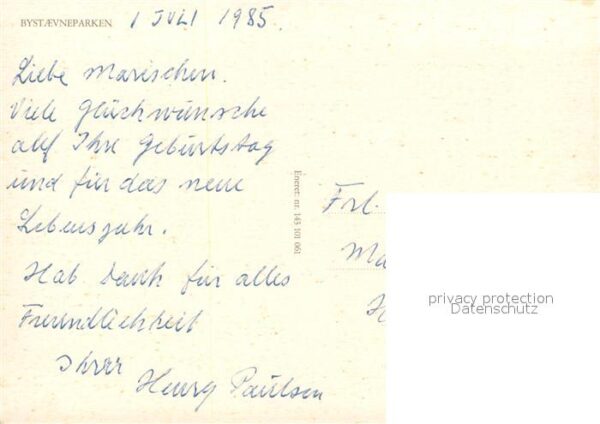 BYSTÆVNEPARKEN
1 JULI 1985.
Liebe Marischen.
Viele Glückwünsche
auf Ihre Geburtstag
und für das neue
Lebensjahr.
Hab Dank für alles
Freundlichkeit
Ihrer
Henry Paulsen
Eneret: nr. 143 101 061
Frl.
Ma
H
privacy protection
Datenschutz